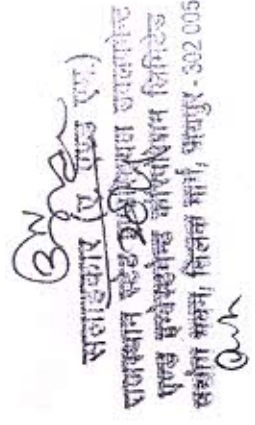 सलाहकार (ए. एण्ड एम.)
राजस्थान स्टेट इण्डस्ट्रियल डवलपमेन्ट
एण्ड इन्वेस्टमेन्ट कॉरपोरेशन लिमिटेड
उद्योग भवन, तिलक मार्ग, जयपुर - 302 005